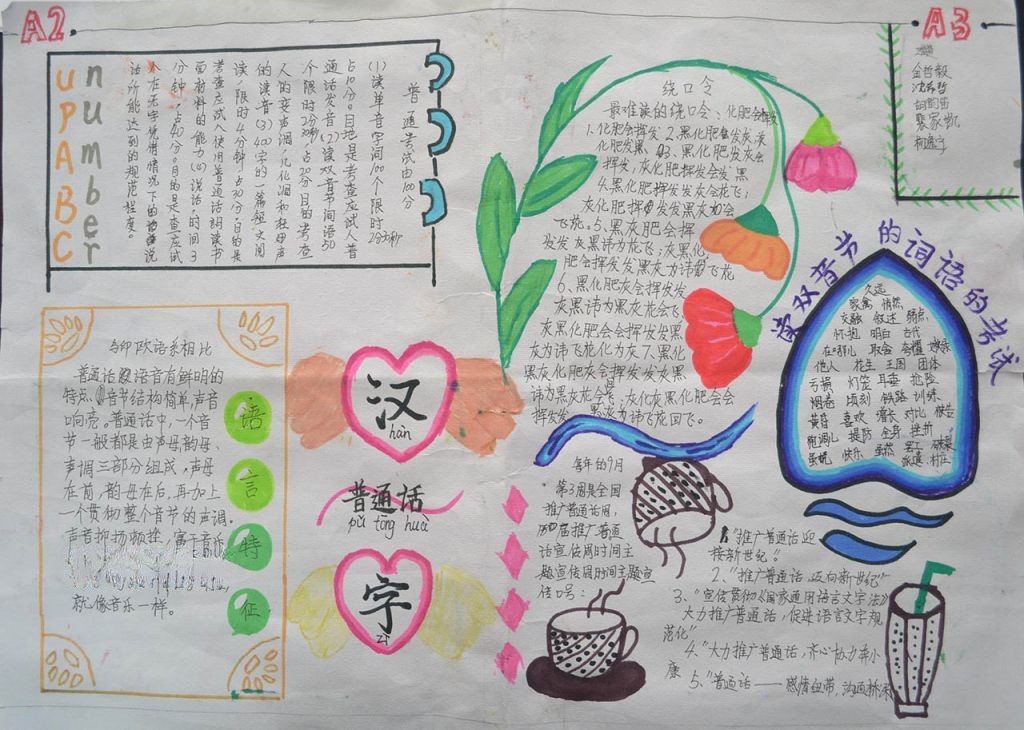 A2
A3
number
upABC
普通话考试由100分
(1)读单音字词100个限时
2分30秒
占10分。目地是考查应试人普
通话发音(2)读双音节词语50
个限时2分30秒,占20分目的考查
人的变声调,儿化词和轻声
的读音(3)400字的一篇短文朗
读限时4分钟占30分。目的是
考查应试人使用普通话朗读书
面材料的能力(4)说话。时间3
分钟,占40分。目的是查应试
人在无字凭借情况下的说
话所能达到的规范程度。
与印欧语系相比
普通话及语音有鲜明的
特点,音节结构简单,声音
响亮。普通话中,一个音
节一般都是由声母韵母、
声调三部分组成,声母
在前,韵母在后,再加上
一个贯彻整个音节的声调。
声音抑扬顿挫,富于音乐
就像音乐一样。
语
言
特
征
汉
hàn
普通话
pǔ tōng huà
字
zì
绕口令
最难读的绕口令、化肥会挥发
1.化肥会挥发2.黑化肥发灰,灰
化肥发黑。3.黑化肥发灰会
挥发,灰化肥挥发会发黑
4.黑化肥挥发发灰会花飞;
灰化肥挥发发黑会
飞花。5、黑灰化肥会挥
发发灰黑讳为花飞;灰黑化
肥会挥发发黑灰为讳飞花
6、黑化肥灰会挥发发
灰黑讳为黑灰花会飞;
灰黑化肥会会挥发发黑
灰为讳飞花化为灰7.黑化
黑灰化肥会挥发发灰黑
讳为黑灰花会飞;灰化灰黑化肥会会
挥发发黑灰为讳飞花回飞。
每年的9月
第3周是全国
推广普通话周,
届推广普通
话宣传周时间主
题宣传周时间主题宣
传口号:
1、"推广普通话迎
接新世纪"
2、"推广普通话,迈向新世纪"
3、"宣传贯彻《国家通用语言文字法》
大力推广普通话,促进语言文字规
范化"
4、"大力推广普通话,齐心协力奔小
康
5、"普通话——感情纽带,沟通桥梁
读双音节的词语的考试
久远
家禽 悄然
交融 叙述 弱点
怀抱 明白 古代
在哪儿 取舍 夸耀
他人 花生 王国 团体
亏损 灯笼 耳膜 抢险
烟卷 顷刻 铁路 训练
黄昏 喜欢 增长 对比
跑调儿 提防 全身 挫折
虽说 快乐 虽然
金哲毅
裴家凯